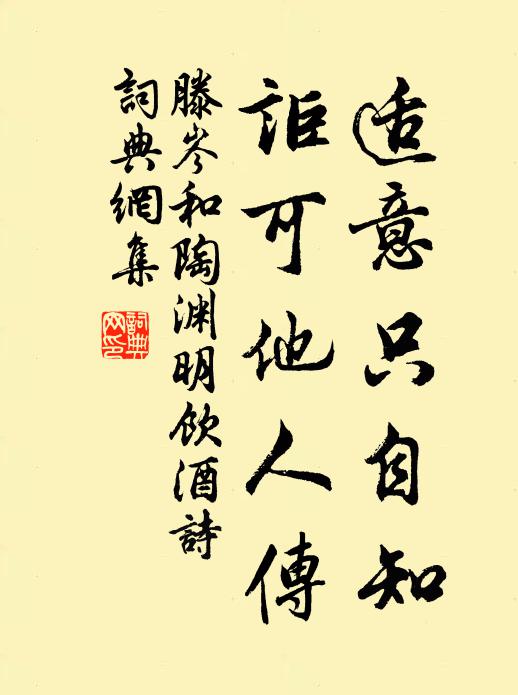 适意只自知
詎可他人傳
滕岑和陶渊明飲酒詩
詞典網集
詞典
网印